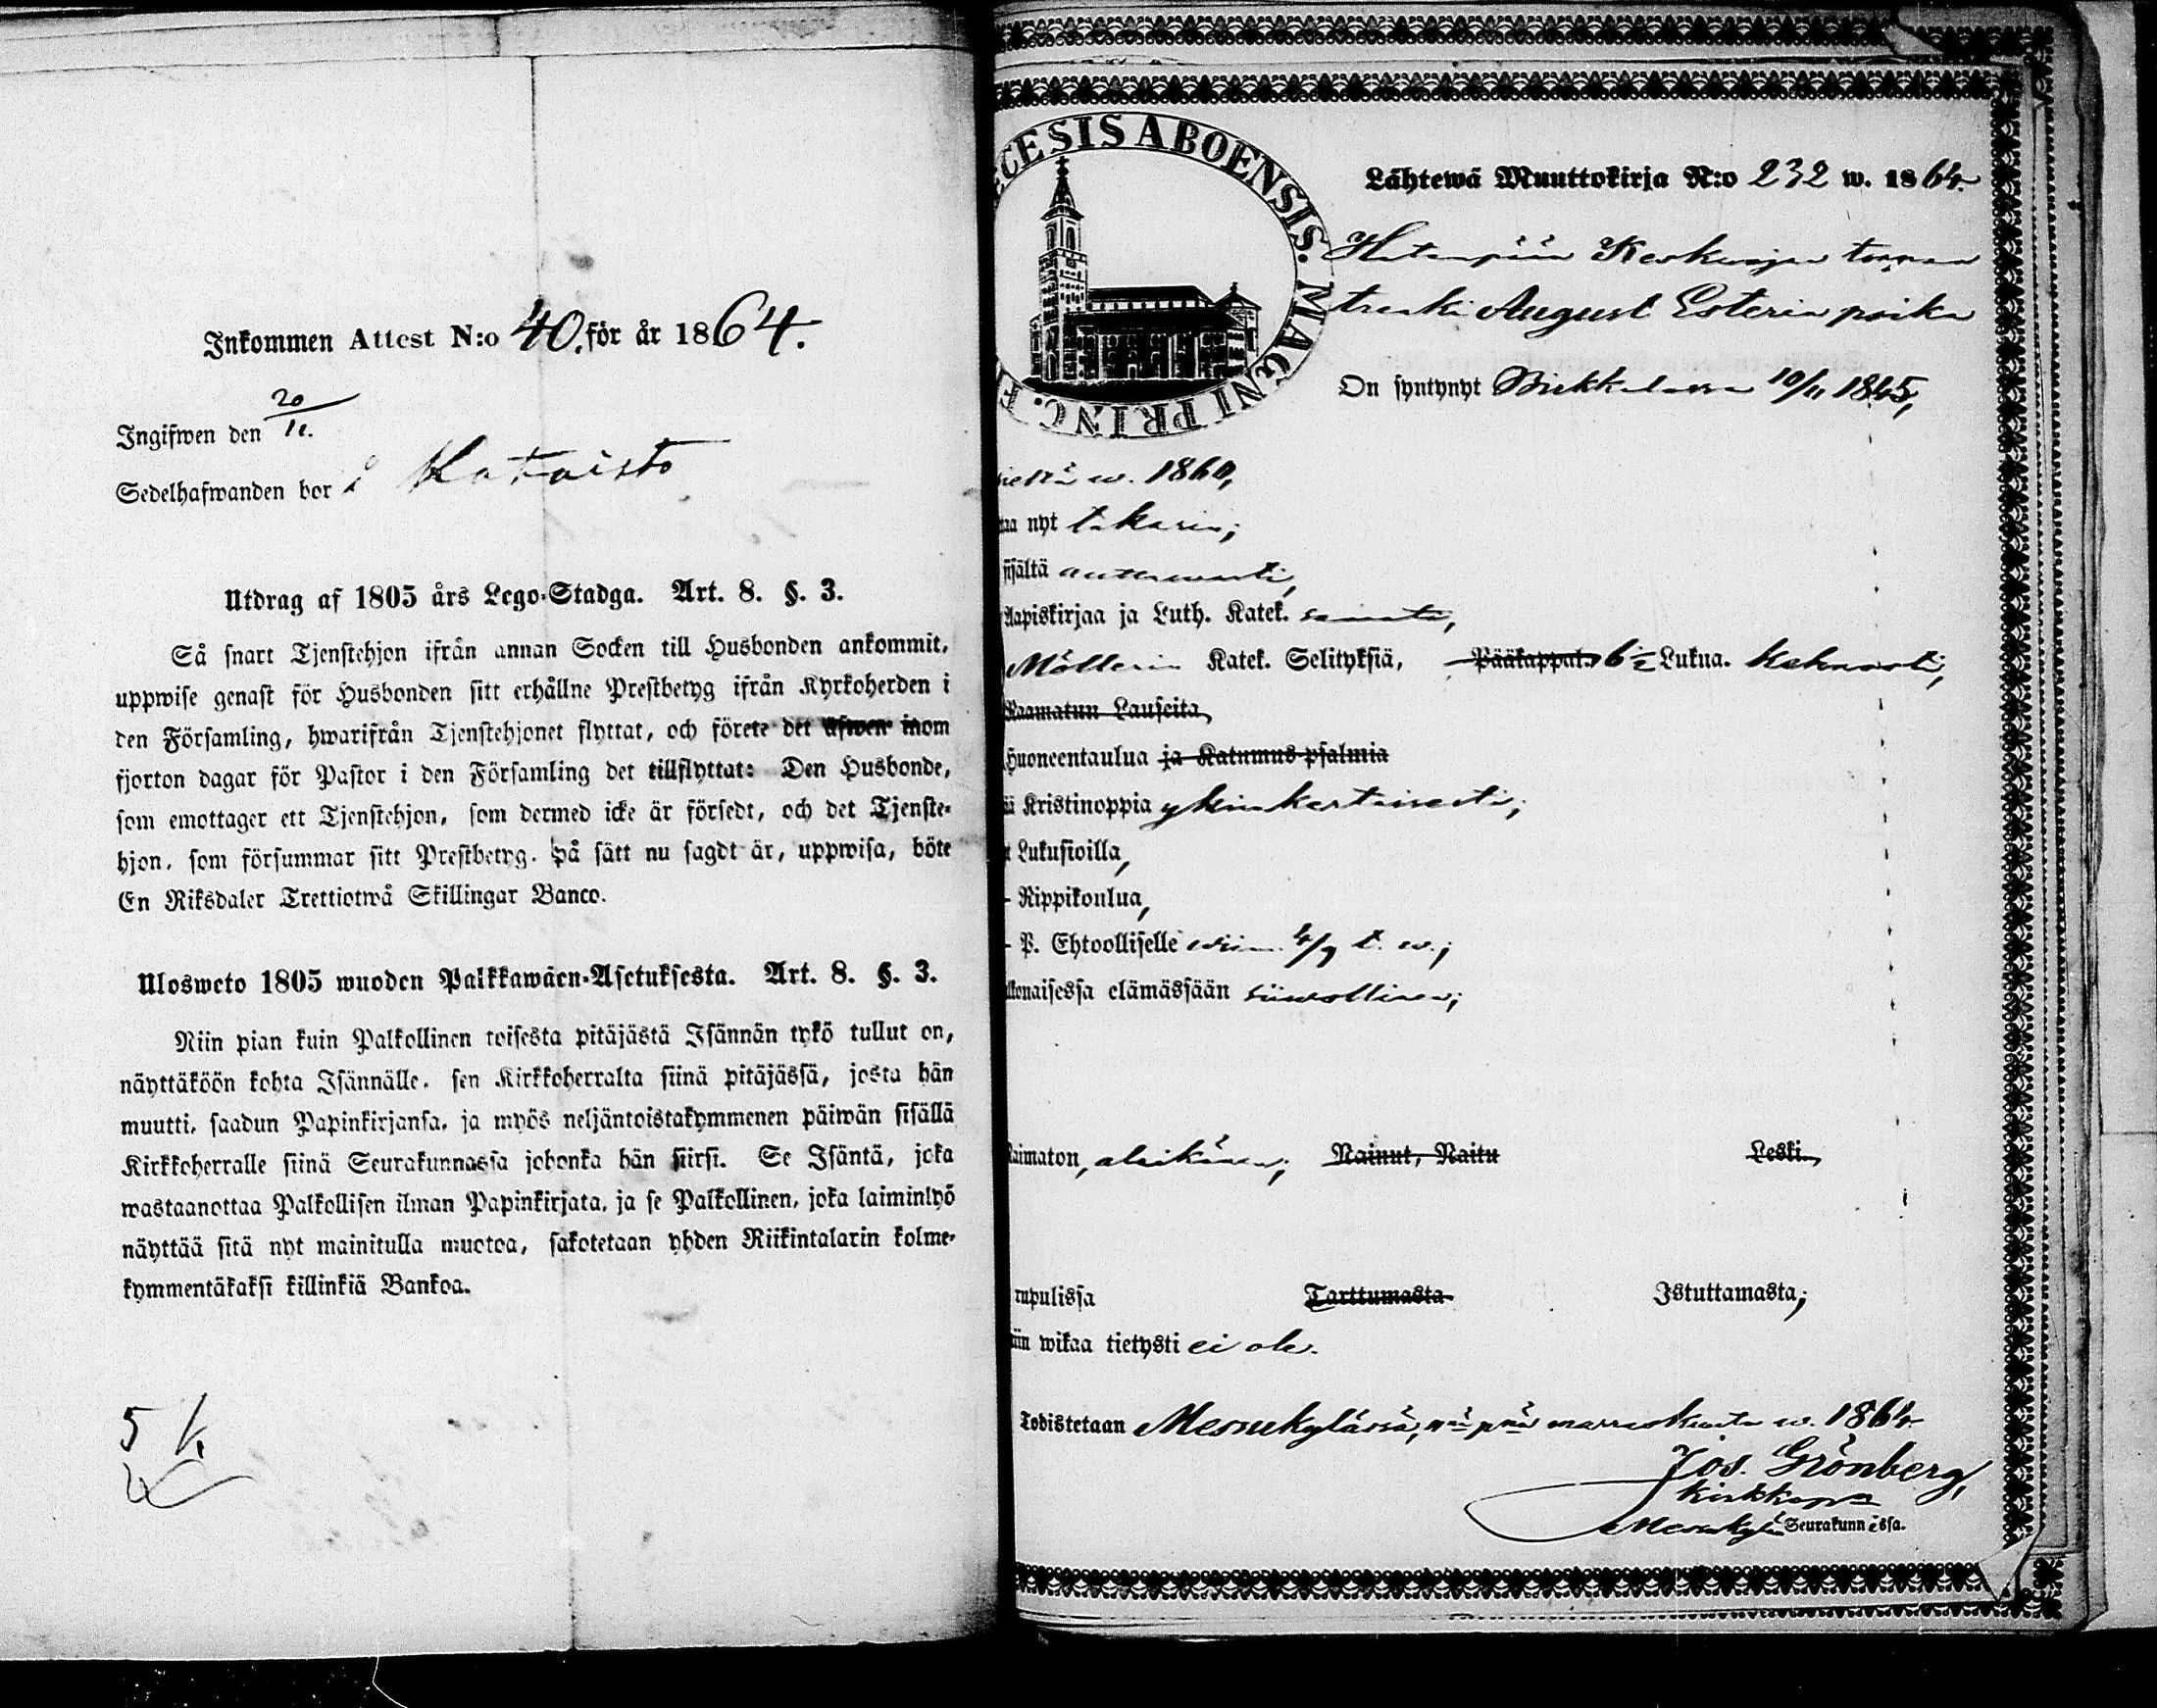 Inkommen Attest N:o 40. för år 1864.
Ingifwen den 20/11.
Sedelhafwanden bor å Kataisto
Utdrag af 1805 års Lego-Stadga. Art. 8. §. 3.
Så snart Tjenstehjon ifrån annan Socken till Husbonden ankommit,
uppwise genast för Husbonden sitt erhållne Prestbetyg ifrån Kyrkoherden i
den Församling, hwarifrån Tjenstehjonet flyttat, och förete det äfwen inom
fjorton dagar för Pastor i den Församling det tillflyttat: Den Husbonde,
som emottager ett Tjenstehjon, som dermed icke är försedt, och det Tjenste-
hjon, som försummar sitt Prestbetyg, på sätt nu sagdt är, uppwisa, böte
En Riksdaler Trettiotwå Skillingar Banco.
Ulosweto 1805 wuoden Palkkawäen-Asetuksesta. Art. 8. §. 3.
Niin pian kuin Palkollinen toisesta pitäjästä Isännän tykö tullut on,
näyttäköön kohta Isännälle, sen Kirkkoherralta siinä pitäjässä, josta hän
muutti, saadun Papinkirjansa, ja myös neljäntoistakymmenen päiwän sisällä
Kirkkoherralle siinä Seurakunnassa johonka hän siirsi. Se Isäntä, joka
wastaanottaa Palkollisen ilman Papinkirjata, ja se Palkollinen, joka laiminlyö
näyttää sitä nyt mainitulla muotoa, sakotetaan yhden Riikintalarin kolme-
kymmentäkaksi killinkiä Bankoa.
5 k
CESIS ABOENSIS. MAGNI PRINC. F
Lähtewä Muuttokirja N:o 232 w. 1864.
Hatanpään
August Esterin poika
On syntynyt Birkkalassa 10/11 1845,
w. 1860,
nyt takasin;
sisältä auttawasti,
Aapiskirjaa ja Luth. Katek. samate,
Möllerin Katek. Selityksiä, Pääkappal. 6 1/2 Lukua. kehnosti,
Raamatun Lauseita,
Huoneentaulua ja Katumus-psalmia
Kristinoppia yksinkertaisesti;
Lukusioilla,
Rippikoulua,
P. Ehtoollisella wiim. 4/9 t. w.;
elämässään siiwollinen;
Naimaton, alaikänen; Nainut, Naitu Leski,
mpulissa Tarttumasta Istuttamasta;
wikaa tietysti ei ole.
Todistetaan Messukylässä, marraskuuta w. 1864.
Jos. Grönberg,
Messukylän Seurakunnassa.